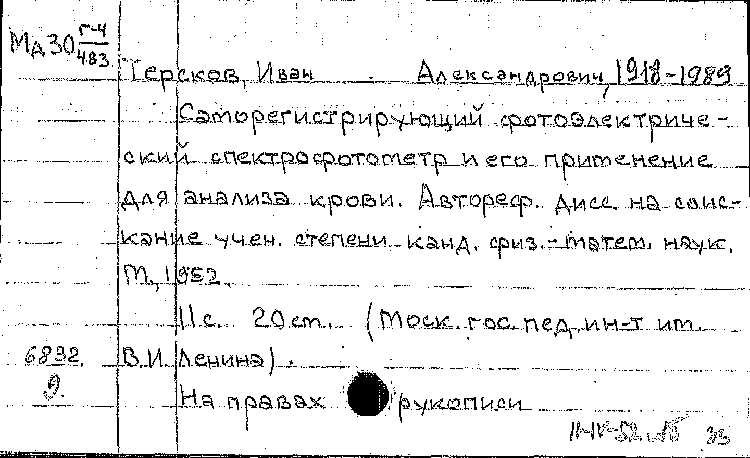 Мд30 Г-4/483
Терсков, Иван Александрович, 1918-1989
Саморегистрирующий фотоэлектриче-
ский спектрофотометр и его применение
для анализа крови. Автореф. дисс. на соис-
кание учен. степени канд. физ.-матем. наук.
М., 1952.
11 с. 20 см. (Моск. гос. пед. ин-т им.
6832 В.И. Ленина).
9.
На правах рукописи
33